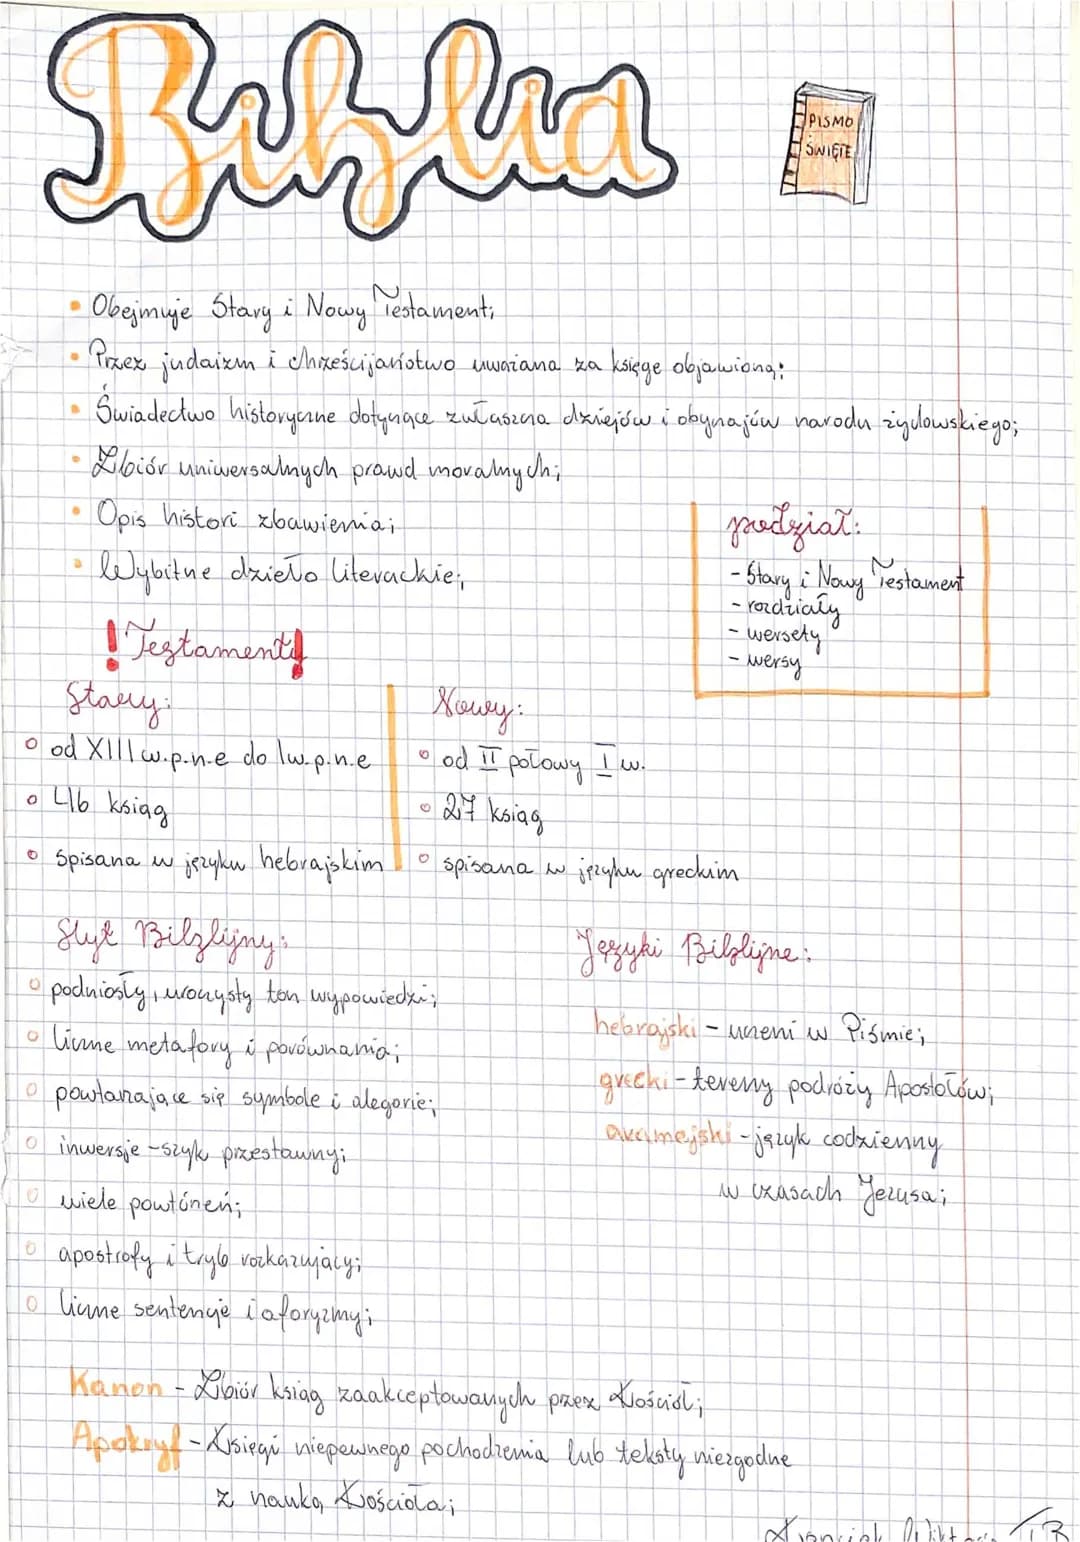 Biblia
PISMO
ŚWIĘTE
• Obejmuje Stary i Nowy Testament;
• Przez judaizm i chrześcijaństwo uważana za księgę objawioną;
• Świadectwo historyczne dotyczące zwłaszcza dziejów i obyczajów narodu żydowskiego;
• Zbiór uniwersalnych prawd moralnych;
• Opis histori zbawienia;
• Wybitne dzieło literackie;
podział:
- Stary i Nowy Testament
- rozdziały
- wersety
- wersy
! Testamenty!
Stary:
od XIII w.p.n.e do I w.p.n.e
46 ksiąg
spisana w języku hebrajskim
Nowy:
od II połowy I w.
27 ksiąg
spisana w języku greckim
Styl Biblijny:
podniosły, uroczysty ton wypowiedzi;
liczne metafory i porównania;
powtarzające się symbole i alegorie;
inwersje - szyk przestawny;
wiele powtórzeń;
apostrofy i tryb rozkazujący;
liczne sentencje i aforyzmy;
Języki Biblijne:
hebrajski - uczeni w Piśmie;
grecki - tereny podróży Apostołów;
aramejski - język codzienny
w czasach Jezusa;
Kanon - Zbiór ksiąg zaakceptowanych przez Kościół;
Apokryf - Księgi niepewnego pochodzenia lub teksty niezgodne
z nauką Kościoła;